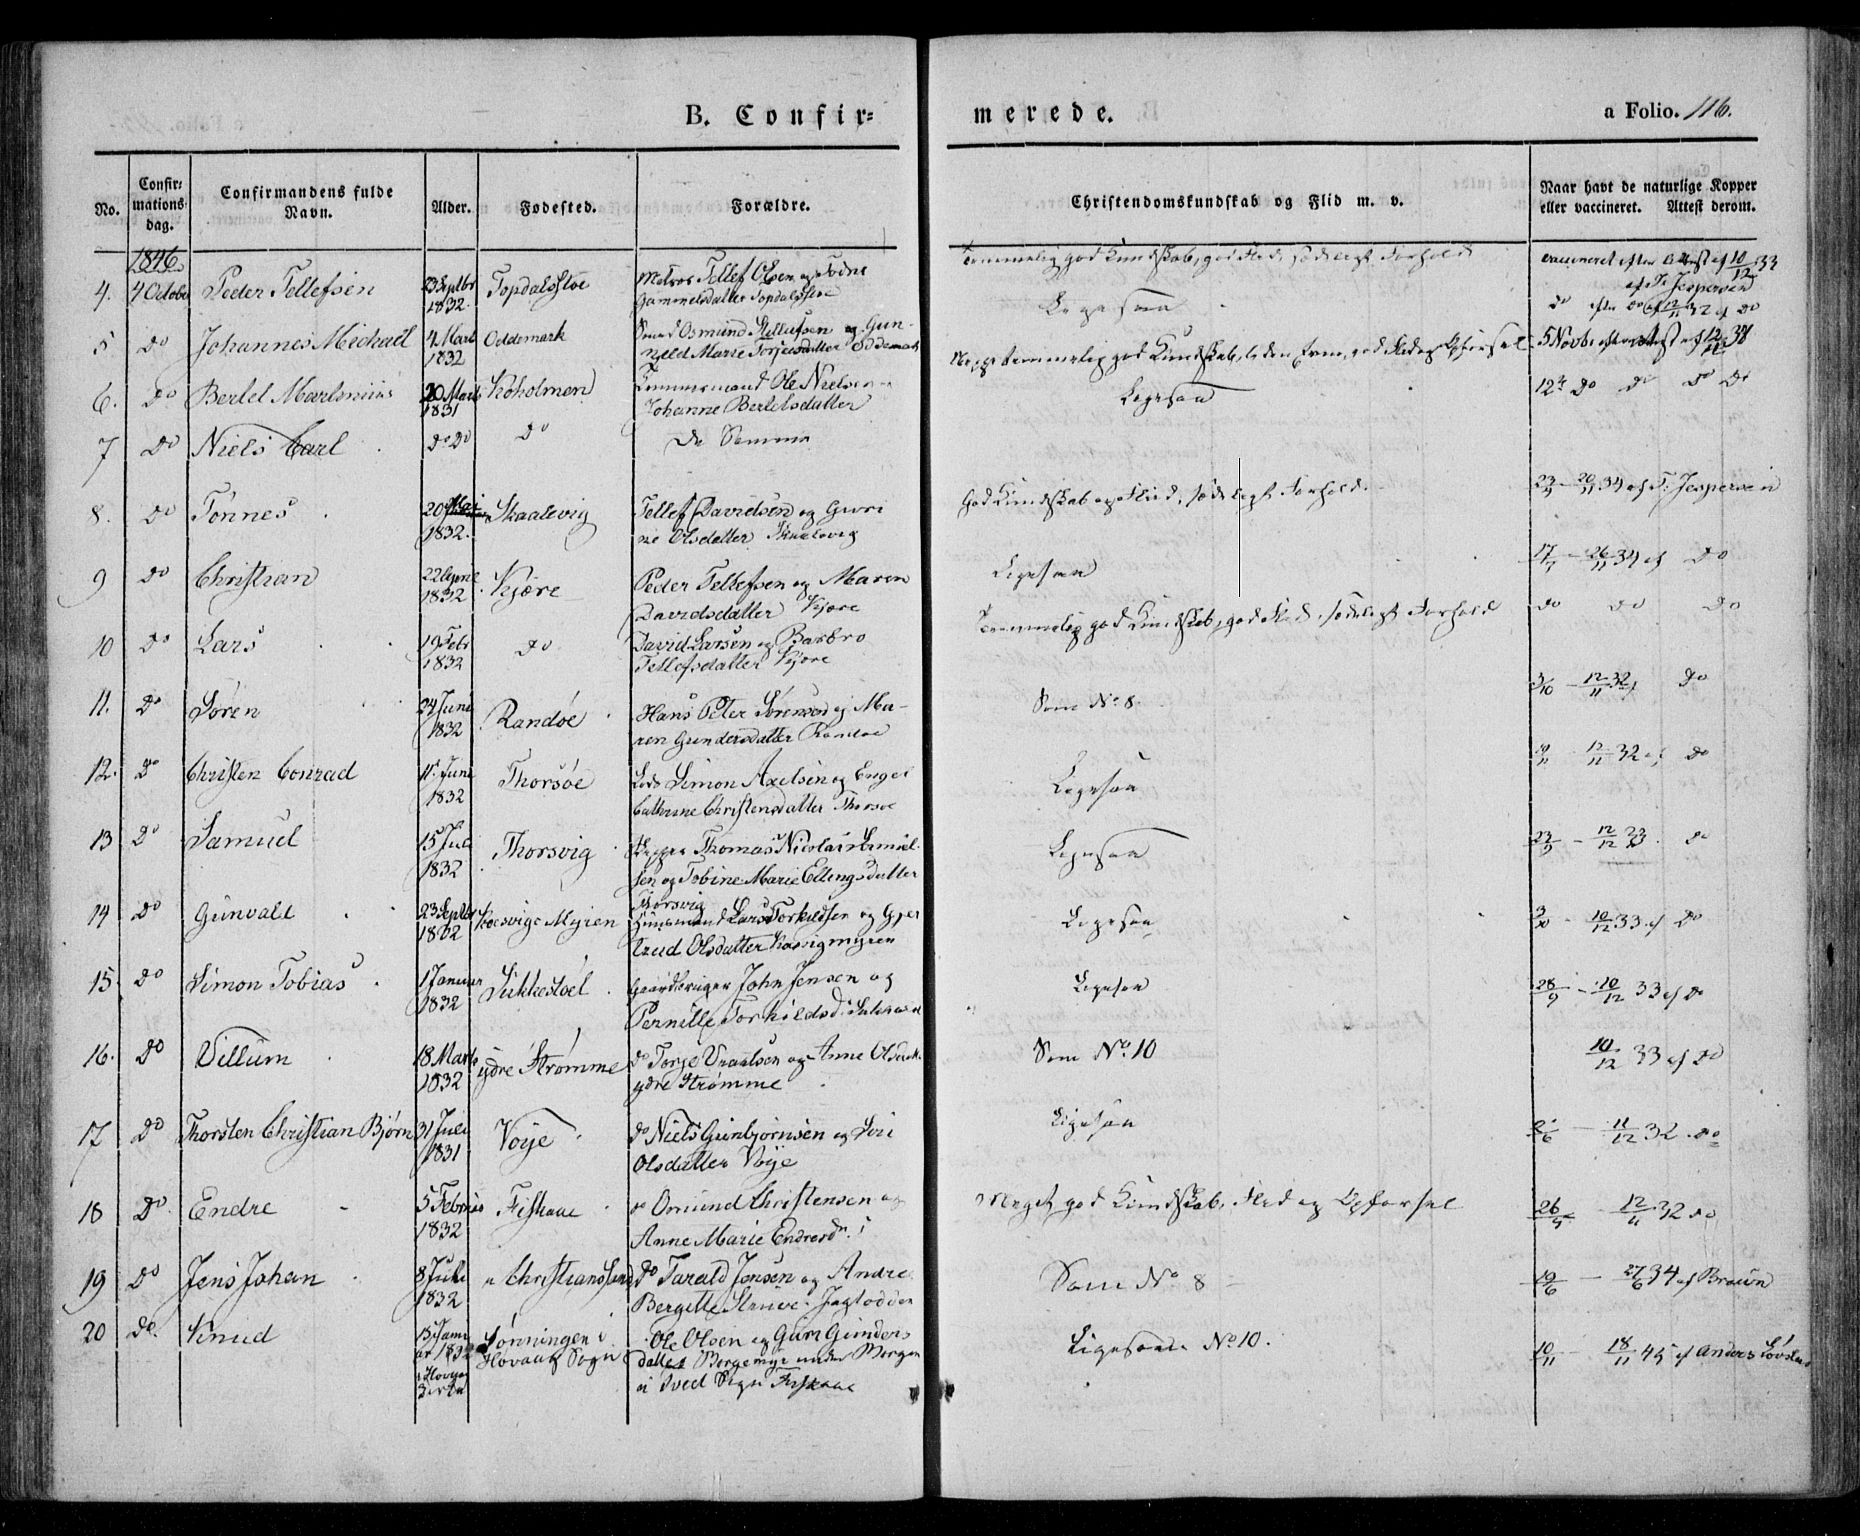 B. Confir=
merede.
a Folio. 116.
No.
Confir=
mations=
dag.
Confirmandens fulde
Navn.
Alder.
Fødested.
Forældre.
Christendomskundskab og Flid m. v.
Naar havt de naturlige Kopper
eller vaccineret. Attest derom.
1846
4. 4 October Peder Tellefsen 23 Septbr 1832. Topdalsstoe
Matros Tellef Olsen og
Gammelsdatter Topdalsstoe
Temmelig god Kundskab, god Flid, sædeligt Forhold
vaccineret efter Attest af 10/12 33
af T. Jespersen
5 Do Johannes Michaël 4 Marts 1832 Oddemark
Osmund Tellefsen og Gun-
nild Marie Torjusdatter Oddemark
Ligesaa
Do efter Do af 12/11 32 af Do
6. Do Bertel Martinius 20 Marts 1831 Koholmen
Tømmermand Ole Nielsen
Johanne Bertelsdatter
Meget temmelig god Kundskab, god Flid og Opførsel
5 Novb. efter Attest af 12/11 34
7 Do Niels Carl Do Do Do
De Samme
Ligesaa
12te Do Do Do Do
8. Do Tønnes 20 Mai 1832. Skaalevig
Tellef Davidsen og Guri
ne Olsdatter Skaalevig
God Kundskab og Flid, sædeligt Forhold.
23/9 - 20/11 34 af T. Jespersen
9 Do Christian 22 1832 Kjære
Peder Tellefsen og Maren
Davidsdatter Kjære
Ligesaa
17/7 - 26/11 34 af Do
10 Do Lars 19 Febr 1832 Do
David Larsen og Barbro
Tellefsdatter Kjære
Temmelig god Kundskab, god Flid, sædeligt Forhold
Do Do Do
11. Do Søren 24 Juni 1832 Randøe
Hans Peter Sørensen og Ma-
ren Gundersdatter Randøe
Som No 8.
3/10 - 12/11 32 af Do
12. Do Christen Conrad 11 Juni 1832 Thorsøe
Lods Simon Axelsen og Engel
Cathrine Christensdatter Thorsøe
Ligesaa
12/11 32 af Do
13 Do Samuel 15 Jul 1832 Thorsvig
Thomas Nicolai Samuel-
sen og Tobine Marie Ellingsdatter
Thorsvig
Ligesaa
23/9 - 12/12 33. Do
14 Do Gunvald 23 Septbr 1832 Kosvige Myren
Huusmand Lars Torkildsen og Gjer
trud Olsdatter Kosvigmyren
Ligesaa
3/10 - 10/12 33 af Do
15. Do Simon Tobias 1 Januar 1832 Sukkestoel
Gaardbruger John Jensen og
Pernille Torkildsd.
Ligesaa
28/9 - 10/12 33 af Do
16. Do Villum 18 Marts 1832 ydre Strømme
Do Torje Vraalsen og Anne Olsdatter
ydre Strømme
Som No. 10
10/12 33 af Do
17 Do Thorsten Christian Bjørn 31 Juli 1831 Voije
Do Niels Gunbjørnsen og Siri
Olsdatter Voije
Ligesaa
11/12 32. Do
18 Do Endre 5 Februar 1832 Fiskaae
Do Omund Christensen og
Anne Marie Endresd.
Meget god Kundskab, Flid og Opførsel
26/5 - 12/11 32 Do
19 Do Jens Johan 8 Juli 1832 Christianssand
Do Tarald Jensen og Andre
Bergitte Struve. Jagtodden
Som No 8
19/6 - 27/6 34 af Braun
20 Do. Knud 13 Janu ar 1832 Hovaag Kirke
Sønningen i
Hovaag Sogn
Ole Olsen og Guri Gunders
datter Borgemyr under Borgen
i Tved Sogn Fiskaae
Ligesom No 10.
10/11 - 18/11 45 af Anders